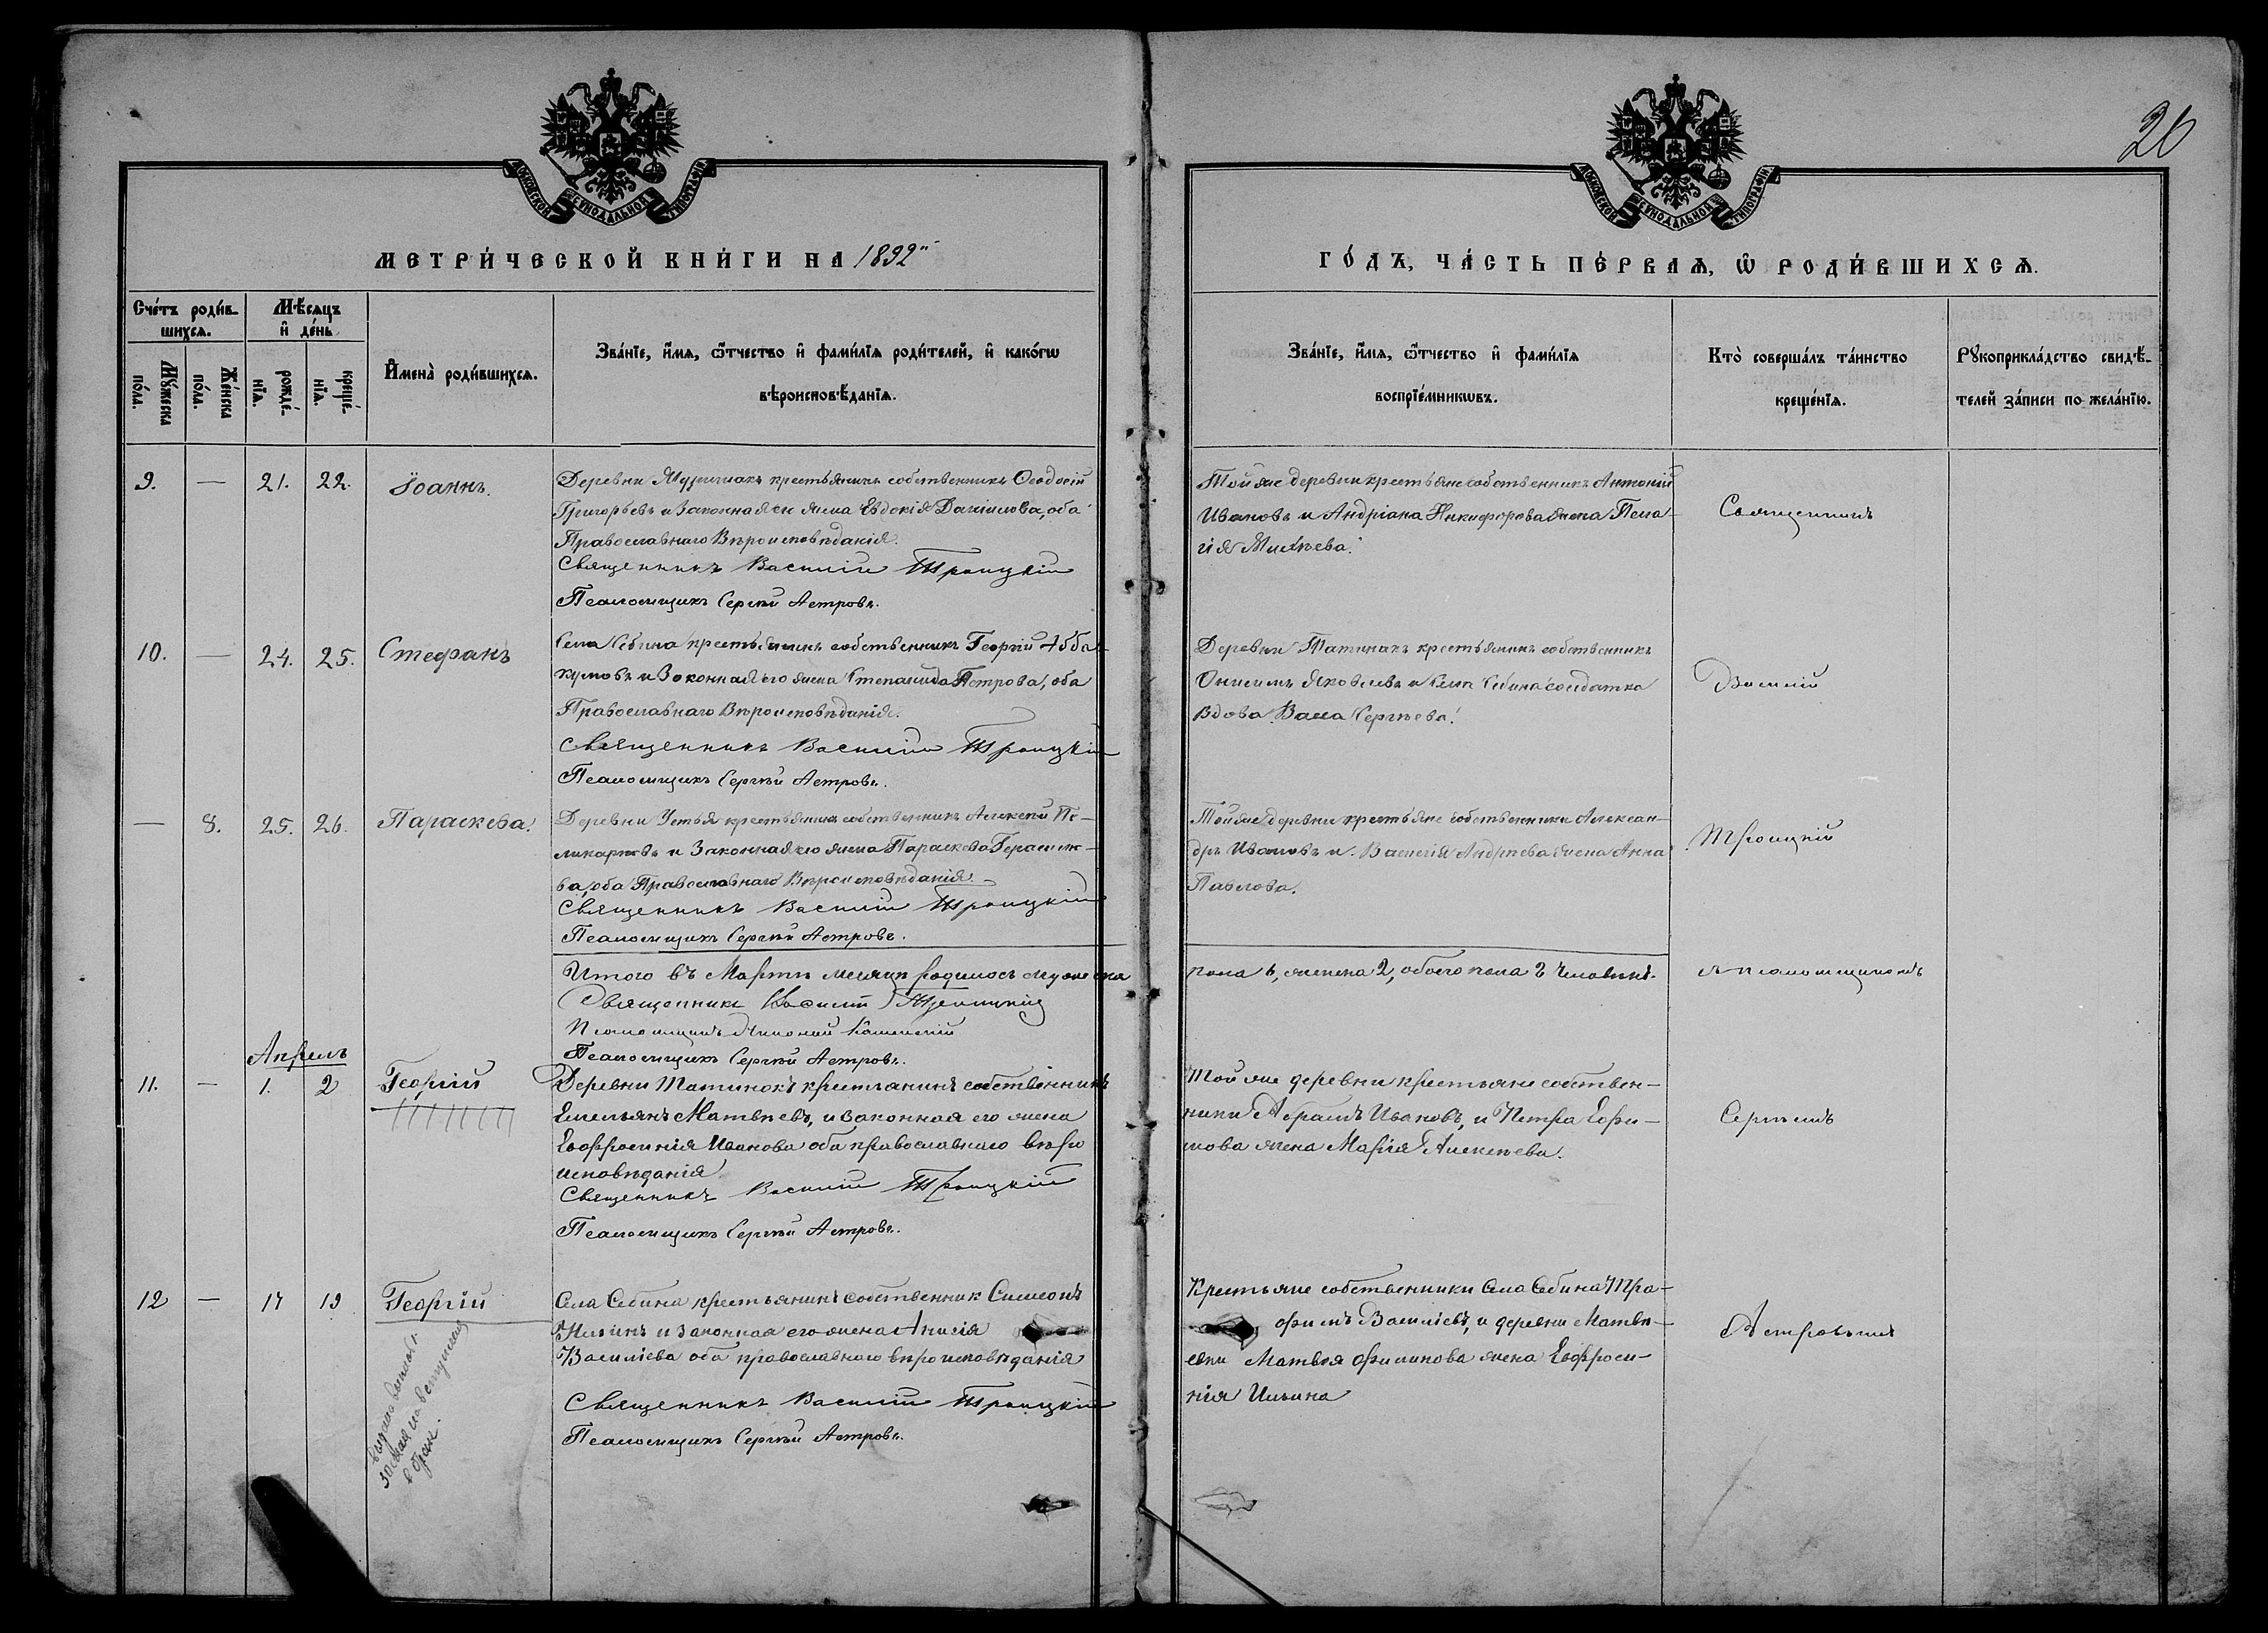 20
МОСКОВСКОЙ СѴНОДАЛЬНОЙ ТИПОГРАФІИ
МОСКОВСКОЙ СѴНОДАЛЬНОЙ ТИПОГРАФІИ
МЕТРИ́ЧЕСКОЙ КНИ́ГИ НА 1892
ГО́ДЪ, ЧА́СТЬ ПЕ́РВАѦ, Ѡ҆ РОДИ́ВШИХСѦ.
Сче́тъ роди́в-
шихсѧ.
Мѣ́сѧцъ
и҆ де́нь
Мꙋ́жеска
по́ла.
Же́нска
по́ла.
рожде́-
нїѧ.
креще́-
нїѧ.
И҆мена̀ роди́вшихсѧ.
Зва́нїе, и҆́мѧ, ѻ҆́тчество и҆ фами́лїѧ роди́телей, и҆ како́гѡ
вѣроисповѣ́данїѧ.
Зва́нїе, и҆́мѧ, ѻ҆́тчество и҆ фами́лїѧ
воспрїе́мникѡвъ.
Кто̀ соверша́лъ та́инство
креще́нїѧ.
Рꙋкоприкла́дство свидѣ́-
телей за́писи по жела́нїю.
9. — 21. 22. Іоаннъ.
Деревни крестьянинъ собственникъ Ѳеодосій
Григорьевъ и Законная его жена Евдокія Даниилова, оба
Православнаго Вѣроисповѣданія.
Священникъ Василій Троицкій
Псаломщикъ Сергѣй Астровъ.
Той же деревни крестьяне собственникъ Антоній
Ивановъ и Андріана Никифорова жена Пела-
гія Михѣева.
Священникъ
10. — 24. 25. Стефанъ
Села Себина крестьянинъ собственникъ Георгій Абба-
кумовъ и Законная его жена Степанида Петрова, оба
Православнаго Вѣроисповѣданія.
Священникъ Василій Троицкій
Псаломщикъ Сергѣй Астровъ.
Деревни Татинокъ крестьянинъ собственникъ
Онисимъ Яковлевъ и Села Себина солдатка
Вдова Васса Сергѣева.
Василій
— 8. 25. 26. Параскева.
Деревни Устья крестьянинъ собственникъ Алексѣй По-
ликарповъ и Законная его жена Параскева Герасимо-
ва, оба Православнаго Вѣроисповѣданія.
Священникъ Василій Троицкій
Псаломщикъ Сергѣй Астровъ.
Той же деревни крестьяне собственники Алексан-
дръ Ивановъ и Василія Андрѣева жена Анна
Павлова.
Троицкій
Итого въ Мартѣ мѣсяцѣ родилось мужеска
пола 6, женска 2, обоего пола 8 человѣкъ.
съ псаломщикомъ
Священникъ Василій Троицкій
Псаломщикъ Каменскій
Псаломщикъ Сергѣй Астровъ.
Апрель
11. — 1. 2 Георгій
Деревни Татинокъ крестьянинъ собственникъ
Емельянъ Матвѣевъ, и законная его жена
Евфросинія Иванова оба православнаго вѣро
исповѣданія.
Священникъ Василій Троицкій
Псаломщикъ Сергѣй Астровъ.
Той же деревни крестьяне собствен-
ники Абрамъ Ивановъ, и Петра Ефи-
мова жена Марія Алексѣева.
Сергѣемъ
12 — 17 19 Георгій
Села Себина крестьянинъ собственник Симеонъ
Ильинъ и законная его жена Анисія
Василіева оба православнаго вѣроисповѣданія
Священникъ Василій Троицкій
Псаломщикъ Сергѣй Астровъ.
Крестьяне собственники Села Себина Тро-
фимъ Василіевъ, и деревни Матвѣ-
евки Матвѣя Филипова жена Евфроси-
нія Ильина
Астровымъ
на вступление
в брак.